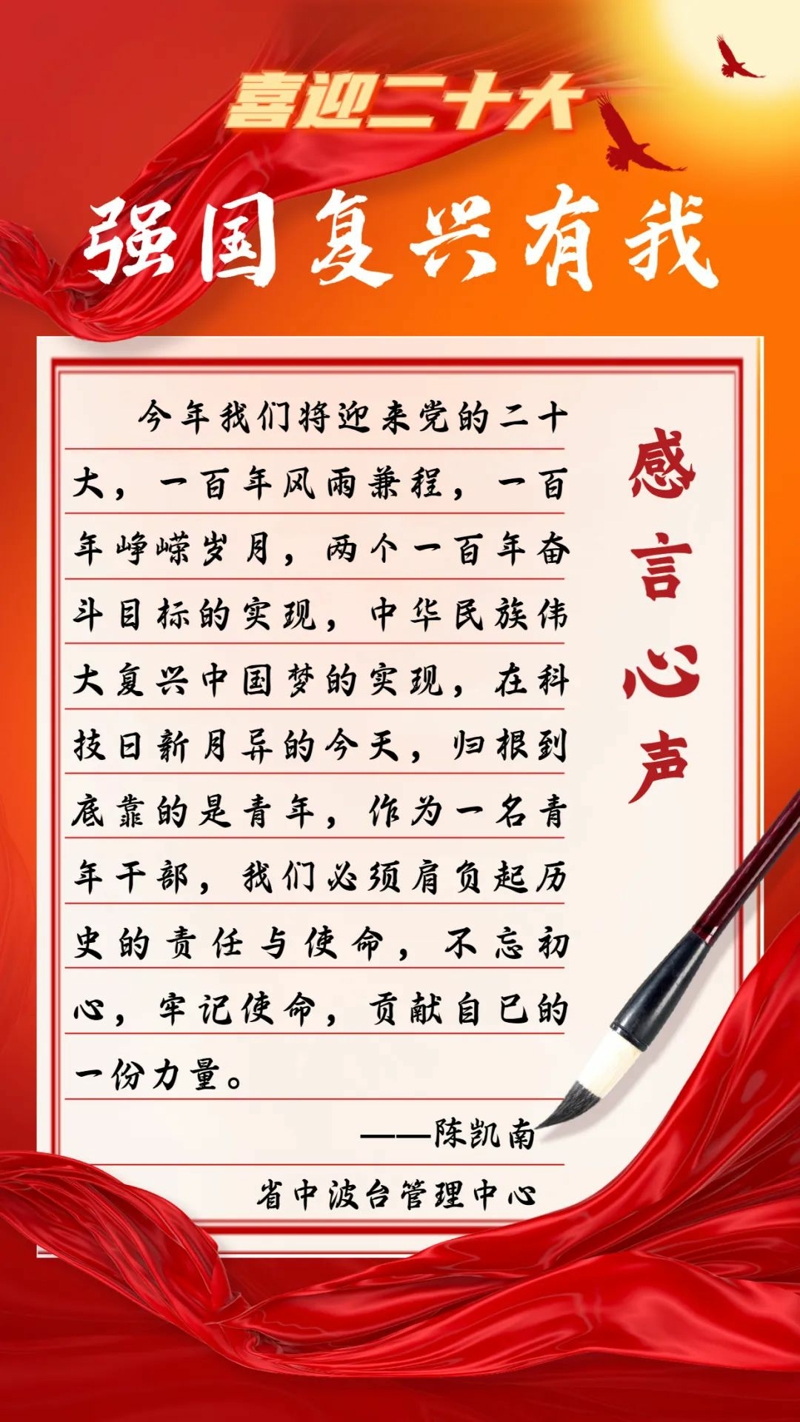 喜迎二十大
强国复兴有我
今年我们将迎来党的二十
大，一百年风雨兼程，一百
年峥嵘岁月，两个一百年奋
斗目标的实现，中华民族伟
大复兴中国梦的实现，在科
技日新月异的今天，归根到
底靠的是青年，作为一名青
年干部，我们必须肩负起历
史的责任与使命，不忘初
心，牢记使命，贡献自己的
一份力量。
——陈凯南
省中波台管理中心
感言心声